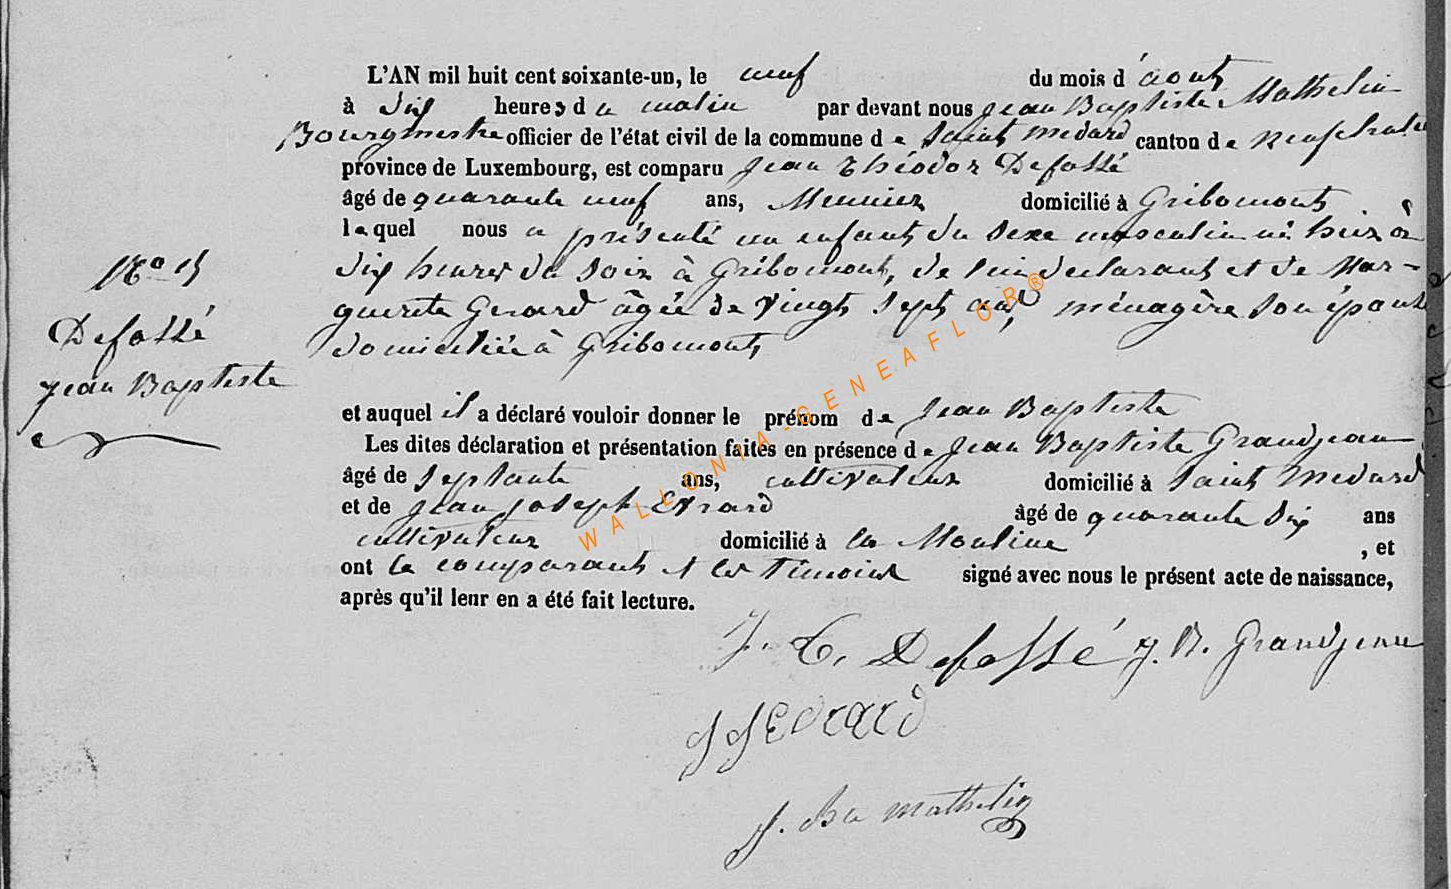 L'AN mil huit cent soixante-un, le neuf du mois d'août
à dix heures du matin par devant nous Jean Baptiste Mathelin
Bourgmestre officier de l'état civil de la commune de Saint Medard canton de Neufchateau
province de Luxembourg, est comparu Jean Théodor Defossé
âgé de quarante neuf ans, Meunier domicilié à Gribomont
lequel nous a présenté un enfant du sexe masculin né hier à
dix heures du soir à Gribomont, de lui déclarant et de Mar-
guerite Gerard âgée de vingt sept ans, ménagère son épouse
domiciliée à Gribomont,
No 15
Defossé
Jean Baptiste
et auquel il a déclaré vouloir donner le prénom de Jean Baptiste
Les dites déclaration et présentation faites en présence de Jean Baptiste Grandjean
âgé de septante ans, cultivateur domicilié à Saint Medard
et de Jean Joseph Evrard âgé de quarante dix ans
cultivateur domicilié à la Mouline , et
ont le comparant et les témoins signé avec nous le présent acte de naissance,
après qu'il leur en a été fait lecture.
J. T. Defossé J. B. Grandjean
J J Evrard
J. Bte Mathelin
WALLONIA-GENEAFLOR®